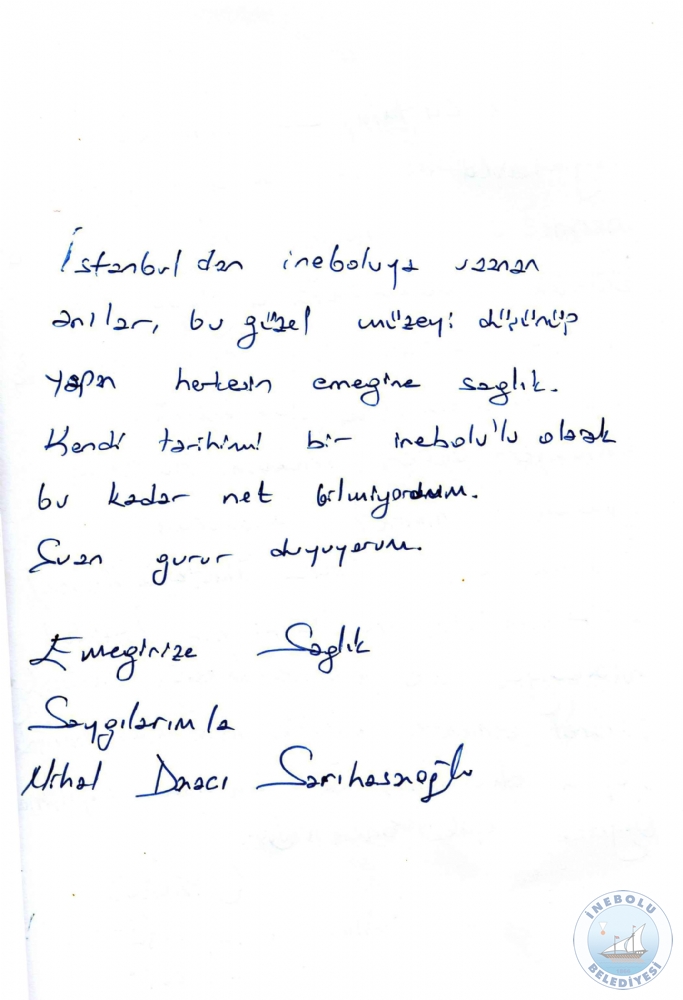 İstanbul'dan ineboluya uzanan
anılar, bu güzel müzeyi düşünüp
yapan herkesin emegine saglık.
Kendi tarihimi bir inebolu'lu olarak
bu kadar net bilmiyordum.
Şuan gurur duyuyorum.
Emeginize Saglık
Saygılarımla
Sarıhasanoğlu
İNEBOLU
BELEDİYESİ